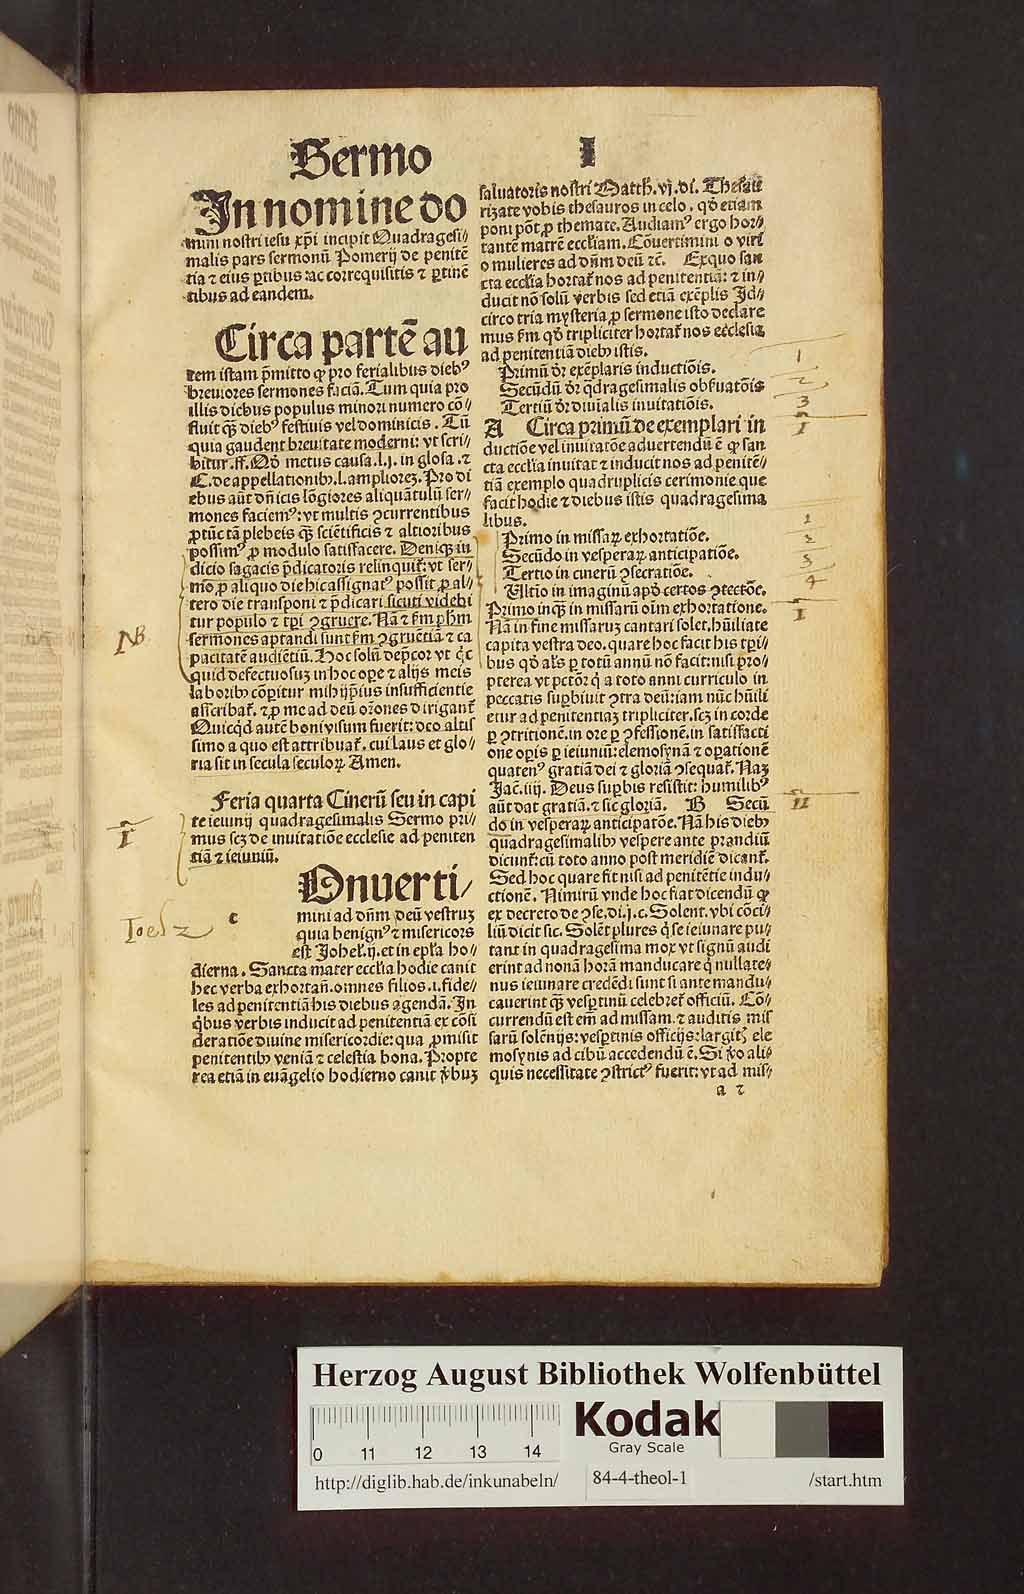 Sermo I
In nomine do
mini nostri iesu xp̄i incipit Quadragesi⸗
malis pars sermonū Pomerij de penitē
tia ⁊ eius ꝑtibus ac correquisitis ⁊ ꝑtinē
tibus ad eandem.
Circa partē au
tem istam p̄mitto ꝙ pro ferialibus diebꝰ
breuiores sermones faciā. Tum quia pro
illis diebus populus minori numero cō⸗
fluit qꝫ diebꝰ festiuis vel dominicis. Tū
quia gaudent breuitate moderni: vt scri⸗
bitur .ff. Qd̄ metus causa .l.j. in glosa .⁊
C. de appellationibꝰ .l. ampliorez. Pro di
ebus aūt dn̄icis lōgiores aliquātulū ser⸗
mones faciemꝰ: vt multis ꝯcurrentibus
ꝓtūc tā plebeis qꝫ sciētificis ⁊ altioribus
possimꝰ ꝓ modulo satisfacere. Deniqꝫ in
dicio sagacis p̄dicatoris relinquit̄: vt ser⸗
mo ꝓ aliquo die hic assignatꝰ possit ꝓ al⸗
tero die transponi ⁊ p̄dicari sicuti videbi
tur populo ⁊ tp̄i ꝯgruere. Nā ⁊ fm̄ ꝑ hm̄
sermones aptandi sunt fm̄ ꝯgruētiā ⁊ ca
pacitatē audiētiū. Hoc solū dep̄cor vt qͥc
quid defectuosuz in hoc oꝑe ⁊ alijs meis
laboribꝰ cōꝑitur mihijp̄ius insufficientie
ascribat̄. ⁊ ꝓ me ad deū or̄ones dirigant̄
Quicqͥd autē boni visum fuerit: deo altis
simo a quo est attribuat̄. cui laus et glo⸗
ria sit in secula seculoꝝ Amen.
Feria quarta Cinerū seu in capi
te ieiunij quadragesimalis Sermo pri⸗
mus scꝫ de inuitatiōe ecclesie ad peniten
tiā ⁊ ieiuniū.
c Onuerti⸗
mini ad dn̄m deū vestruz
quia benignꝰ ⁊ misericors
est Johel̄.ij. et in epl̄a ho⸗
dierna. Sancta mater eccl̄ia hodie canit
hec verba exhortan̄. omnes filios .i. fide⸗
les ad penitentiā his diebus agendā. In
qͥbus verbis inducit ad penitentiā ex cōsi
deratiōe diuine misericordie: qua ꝓmisit
penitentibꝰ veniā ⁊ celestia bona. Propte
rea etiā in euāgelio hodierno canit v̄buz
saluatoris nostri Matth̄.vj.di. Thesau
rizate vobis thesauros in celo. qd̄ etiam
poni pōt ꝓ themate. Audiamꝰ ergo hor⸗
tantē matrē eccl̄iam. Cōuertimini o viri
o mulieres ad dn̄m deū ⁊c̄. Exquo san
cta eccl̄ia hortat̄ nos ad penitentiā: ⁊ in⸗
ducit nō solū verbis sed etiā exēplis Id⸗
circo tria mysteria ꝓ sermone isto declare
mus fm̄ qd̄ tripliciter hortat̄ nos ecclesia
ad penitentiā diebꝰ istis.
Primū dr̄ exēplaris inductiōis.
Secūdū dr̄ qͣdragesimalis obseruatōis
Tertiū dr̄ diuinalis inuitatiōis.
A Circa primū de exemplari in
ductiōe vel inuitatōe aduertendū ē ꝙ san
cta eccl̄ia inuitat ⁊ inducit nos ad penitē⸗
tiā exemplo quadruplicis cerimonie que
facit hodie ⁊ diebus istis quadragesima
libus.
Primo in missaꝝ exhortatiōe.
Secūdo in vesperaꝝ anticipatiōe.
Tertio in cinerū ꝯsecratiōe.
Ultīo in imaginū apd̄ certos ꝯtectōe.
Primo inqꝫ in missarū oīm exhortatione.
Nā in fine missaruz cantari solet. hūiliate
capita vestra deo. quare hoc facit his tp̄i⸗
bus qd̄ al̄s ꝑ totū annū nō facit: nisi pro⸗
pterea vt pctōr̄ qͥ a toto anni curriculo in
peccatis suꝑbiuit ꝯtra deū: iam nūc hūili
etur ad penitentiaz tripliciter. scꝫ in corde
ꝑ ꝯtritionē. in ore ꝑ ꝯfessionē. in satisfacti
one oꝑis ꝑ ieiuniū: elemosynā ⁊ oꝑationē
quatenꝰ gratiā dei ⁊ gloriā ꝯsequat̄. Naz
Jac̄.iiij. Deus suꝑbis resistit: humilibꝰ
aūt dat gratiā. ⁊ sic gloriā. B Secū
do in vesperaꝝ anticipatōe. Nā his diebꝰ
quadragesimalibꝰ vespere ante prandiū
dicunt̄: cū toto anno post meridiē dicant̄.
Sed hoc quare fit nisi ad penitētie indu⸗
ctionē. Nimirū vnde hoc fiat dicendū ꝙ
ex decreto de ꝯse.di.j.c. Solent. vbi cōci⸗
liū dicit sic. Solēt plures qͥ se ieiunare pu⸗
tant in quadragesima mox vt signū audi
erint ad nonā horā manducare qͥ nullate⸗
nus ieiunare credēdi sunt si ante mandu⸗
cauerint qꝫ vesꝑtinū celebret̄ officiū. Cō⸗
currendū est em̄ ad missam. ⁊ auditis mis
sarū solēnijs: vesꝑtinis officijs: largitꝭ ele
mosynis ad cibū accedendū ē. Si v̄o ali⸗
quis necessitate ꝯstrictꝰ fuerit: vt ad mis⸗
a 2
NB
I
Joel 2
1
2
3
I
1
2
3
4
I
II
Herzog August Bibliothek Wolfenbüttel
Kodak
Gray Scale
0 11 12 13 14
http://diglib.hab.de/inkunabeln/ 84-4-theol-1 /start.htm